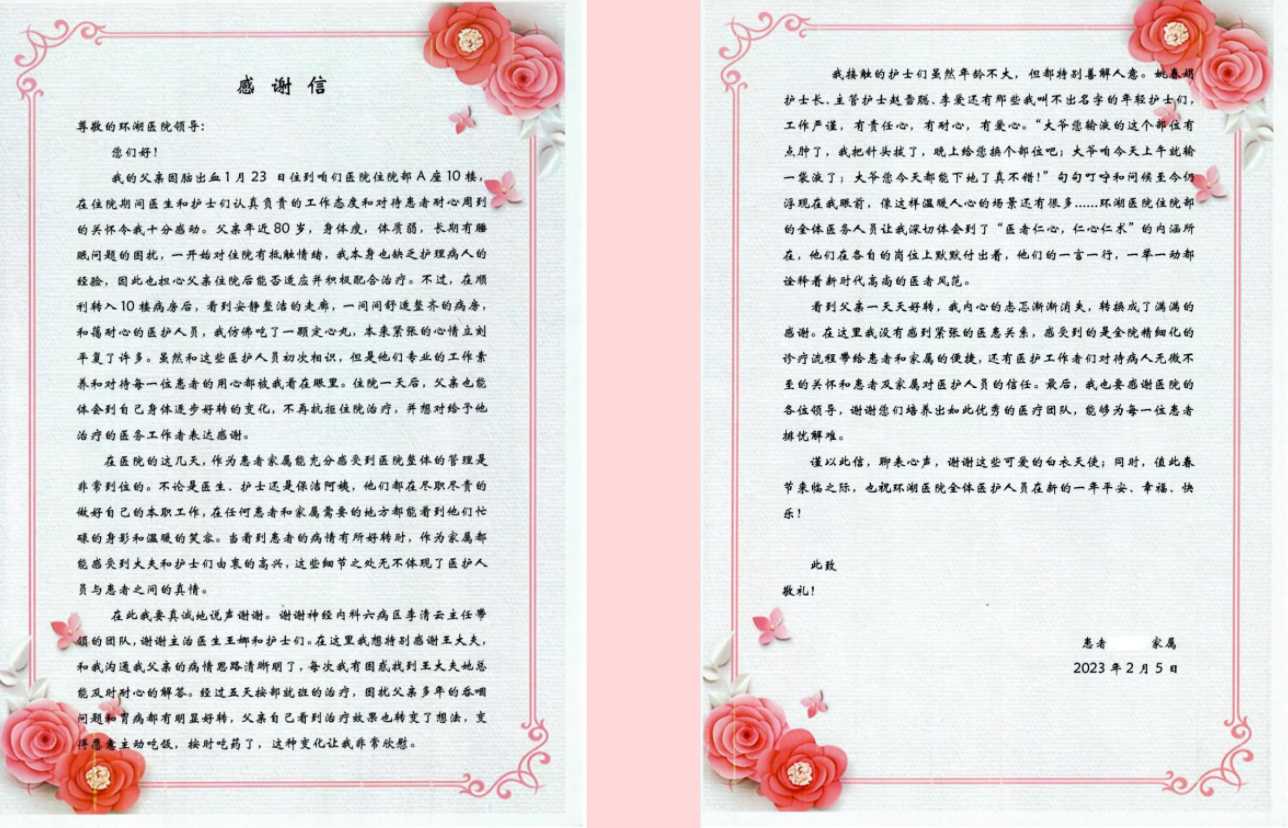 感谢信
尊敬的环湖医院领导：
您们好！
我的父亲因脑出血1月23 日住到咱们医院住院部A座10楼，
在住院期间医生和护士们认真负责的工作态度和对待患者耐心周到
的关怀令我十分感动。父亲年近80岁，身体瘦，体质弱，长期有睡
眠问题的困扰，一开始对住院有抵触情绪，我本身也缺乏护理病人的
经验，因此也担心父亲住院后能否适应并积极配合治疗。不过，在顺
利转入10楼病房后，看到安静整洁的走廊，一间间舒适整齐的病房，
和蔼耐心的医护人员，我仿佛吃了一颗定心丸，本来紧张的心情立刻
平复了许多。虽然和这些医护人员初次相识，但是他们专业的工作素
养和对待每一位患者的用心都被我看在眼里。住院一天后，父亲也能
体会到自己身体逐步好转的变化，不再抗拒住院治疗，并想对给予他
治疗的医务工作者表达感谢。
在医院的这几天，作为患者家属能充分感受到医院整体的管理是
非常到位的。不论是医生、护士还是保洁阿姨，他们都在尽职尽责的
做好自己的本职工作，在任何患者和家属需要的地方都能看到他们忙
碌的身影和温暖的笑容。当看到患者的病情有所好转时，作为家属都
能感受到大夫和护士们由衷的高兴，这些细节之处无不体现了医护人
员与患者之间的真情。
在此我要真诚地说声谢谢。谢谢神经内科六病区李清云主任带
领的团队，谢谢主治医生王娜和护士们。在这里我想特别感谢王大夫，
和我沟通我父亲的病情思路清晰明了，每次我有困惑找到王大夫她总
能及时耐心的解答。经过五天按部就班的治疗，困扰父亲多年的吞咽
问题和胃病都有明显好转，父亲自己看到治疗效果也转变了想法，变
得愿意主动吃饭，按时吃药了，这种变化让我非常欣慰。
我接触的护士们虽然年龄不大，但都特别善解人意。姚春娟
护士长、主管护士赵雪聪、李爱还有那些我叫不出名字的年轻护士们，
工作严谨，有责任心，有耐心，有爱心。“大爷您输液的这个部位有
点肿了，我把针头拔了，晚上给您换个部位吧；大爷咱今天上午就输
一袋液了；大爷您今天都能下地了真不错！”句句叮咛和问候至今仍
浮现在我眼前，像这样温暖人心的场景还有很多......环湖医院住院部
的全体医务人员让我深切体会到了“医者仁心，仁心仁术”的内涵所
在，他们在各自的岗位上默默付出着，他们的一言一行，一举一动都
诠释着新时代高尚的医者风范。
看到父亲一天天好转，我内心的忐忑渐渐消失，转换成了满满的
感谢。在这里我没有感到紧张的医患关系，感受到的是全院精细化的
诊疗流程带给患者和家属的便捷，还有医护工作者们对待病人无微不
至的关怀和患者及家属对医护人员的信任。最后，我也要感谢医院的
各位领导，谢谢您们培养出如此优秀的医疗团队，能够为每一位患者
排忧解难。
谨以此信，聊表心声，谢谢这些可爱的白衣天使；同时，值此春
节来临之际，也祝环湖医院全体医护人员在新的一年平安、幸福、快
乐！
此致
敬礼！
患者 家属
2023年2月5日